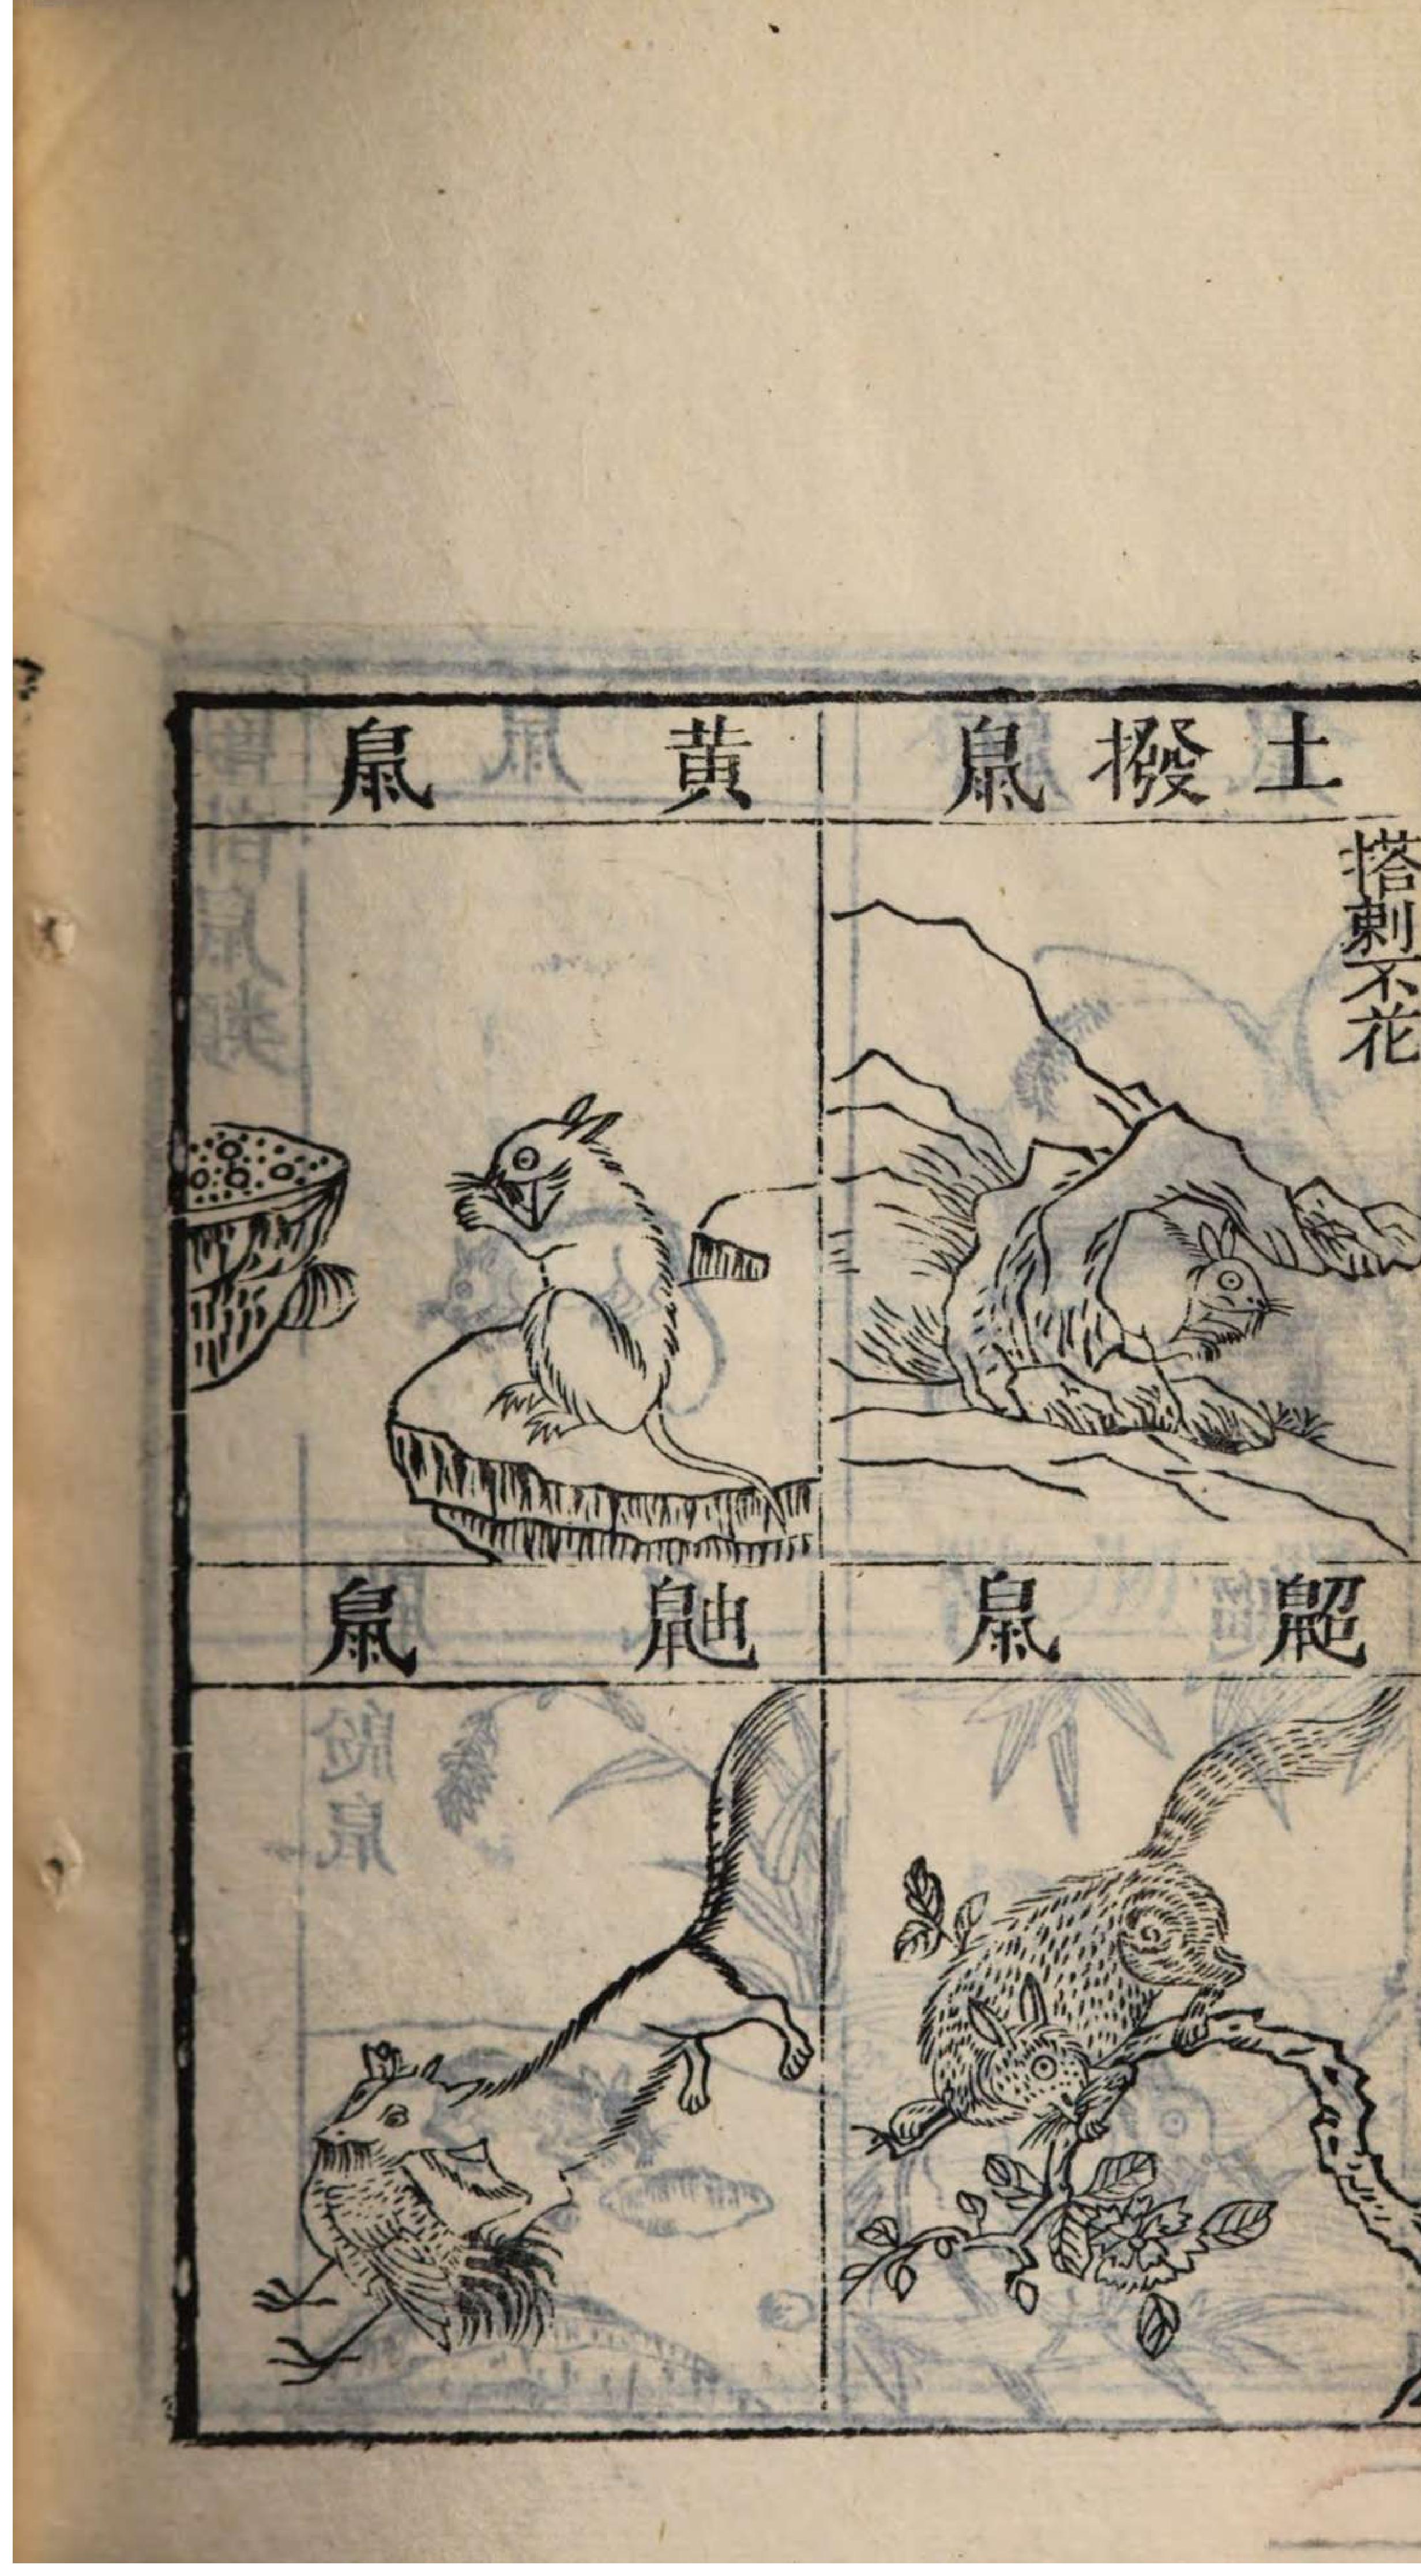 土撥鼠
搭剌不花
黄鼠
鼦鼠
鼬鼠